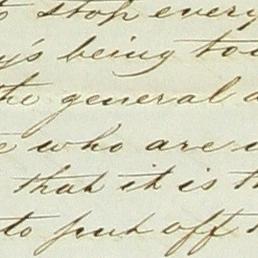 to stop every
y's being
the general
who are
that it is
to put off